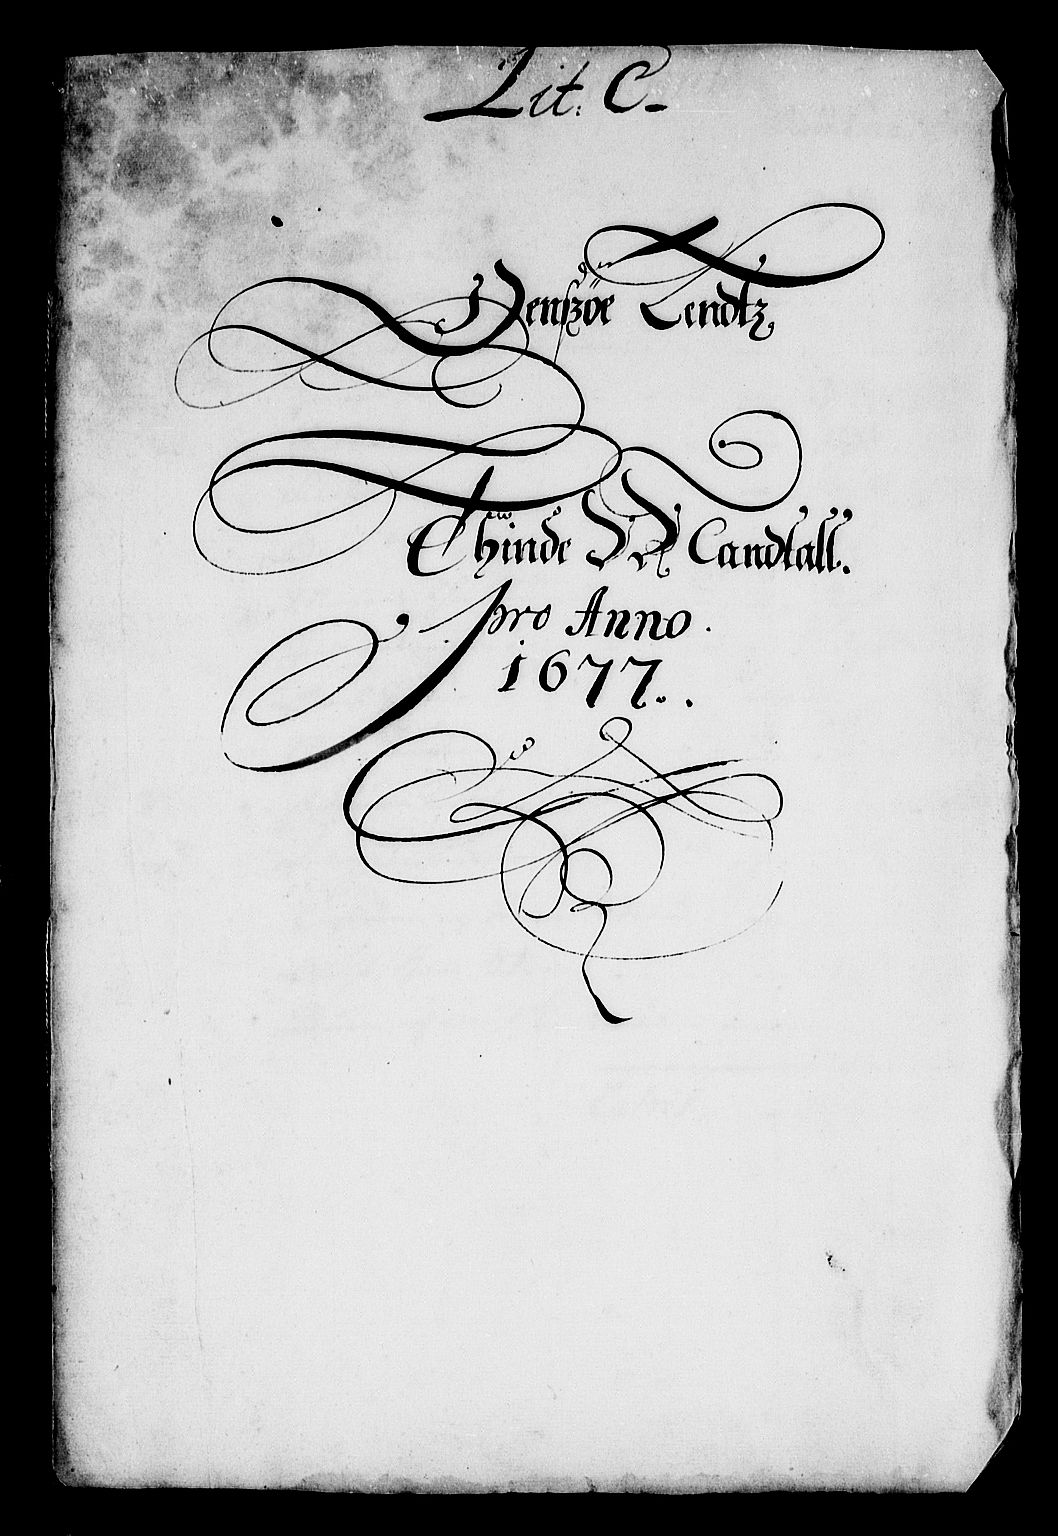 Lit: C.
Senszöe Lendtz,
Thiinde Mandtall.
pro Anno.
1677..